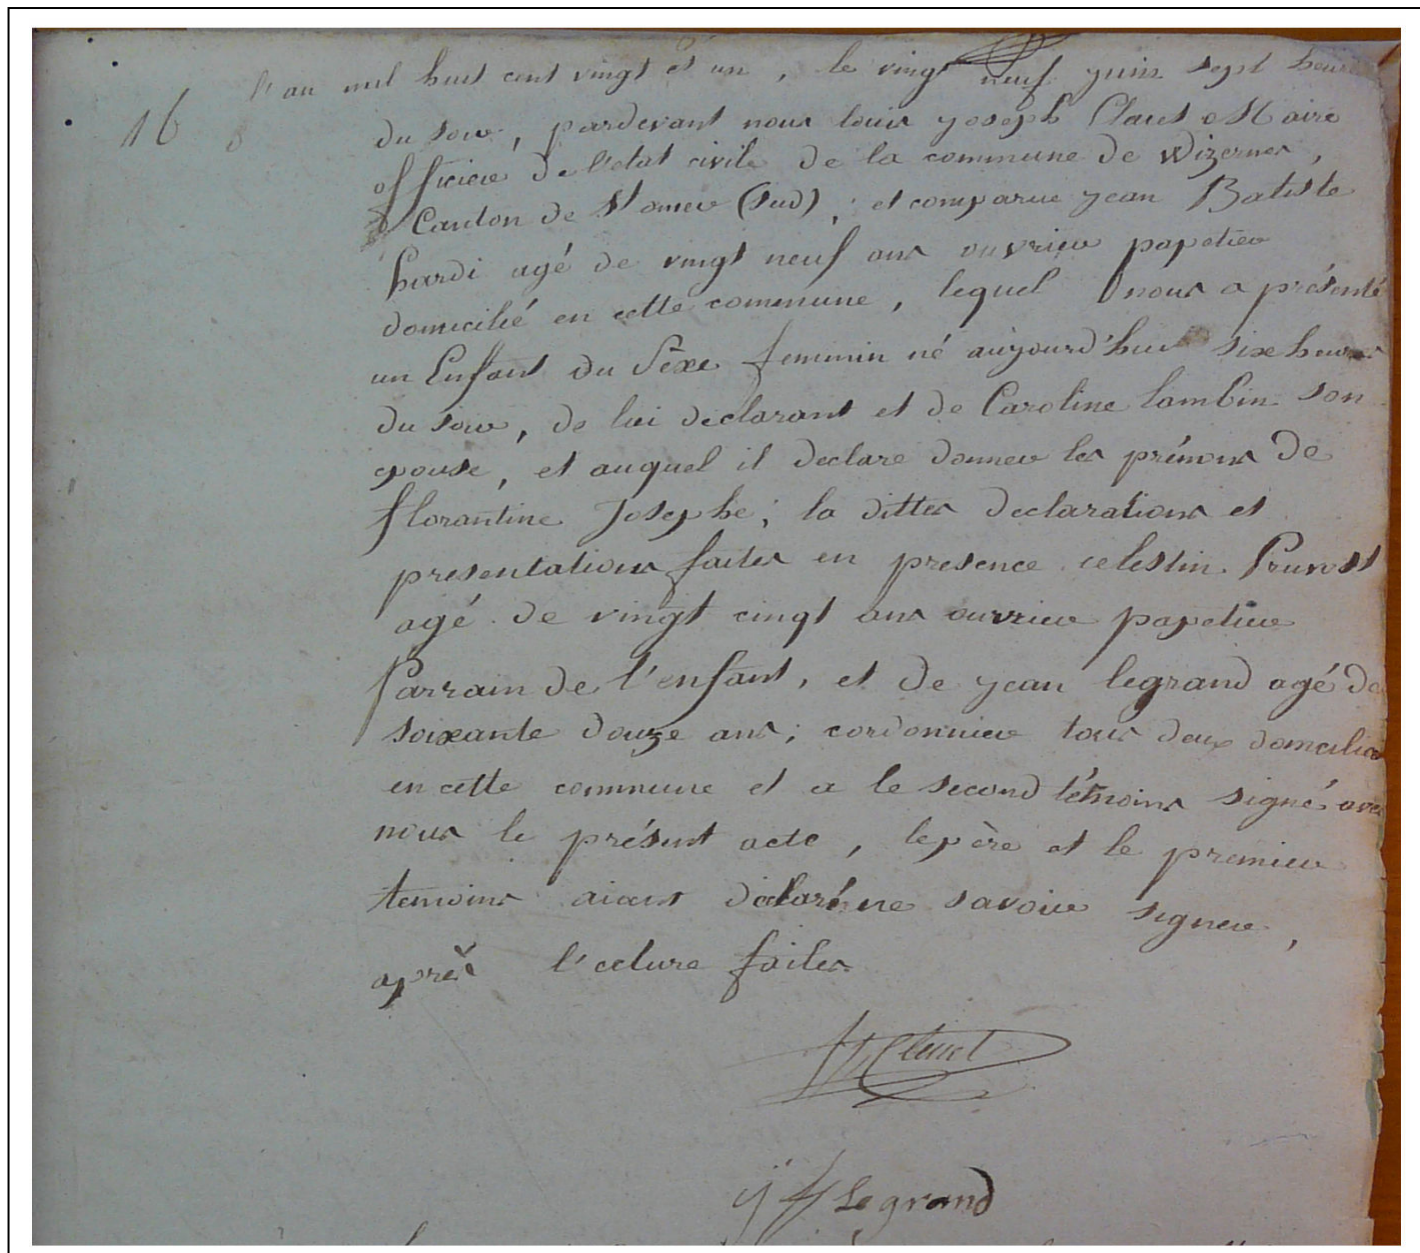 l'an mil huit cent vingt et un, le vingt neuf yuin sept heures
16 du soir, pardevant nous louis yoseph Clauet Maire
officier de l'etat civile de la commune de Wizernes,
Canton de St omer (Sud), et comparue yean Batiste
hardi agé de vingt neuf ans ouvrier papetier
domicilié en cette commune, lequel nous a présenté
un Enfant du Sexe femmin né auyourd'hui six heures
du soir, de lui declarant et de Caroline lambin son
epouse, et auquel il declare donner les prénoms de
florantine Josephe; la dittes declarations et
presentations faites en presence celestin Pruvost
agé de vingt cinqt ans ouvrier papetier
parrain de l'enfant, et de yean legrand agé de
soixante douze ans; cordonnier tous deux domcilies
en cette commune et a le second témoins signé avec
nous le présent acte, le père et le premier
temoins aiant déclaré ne savoir signer,
après l'ecture faites
Clauet
y Legrand